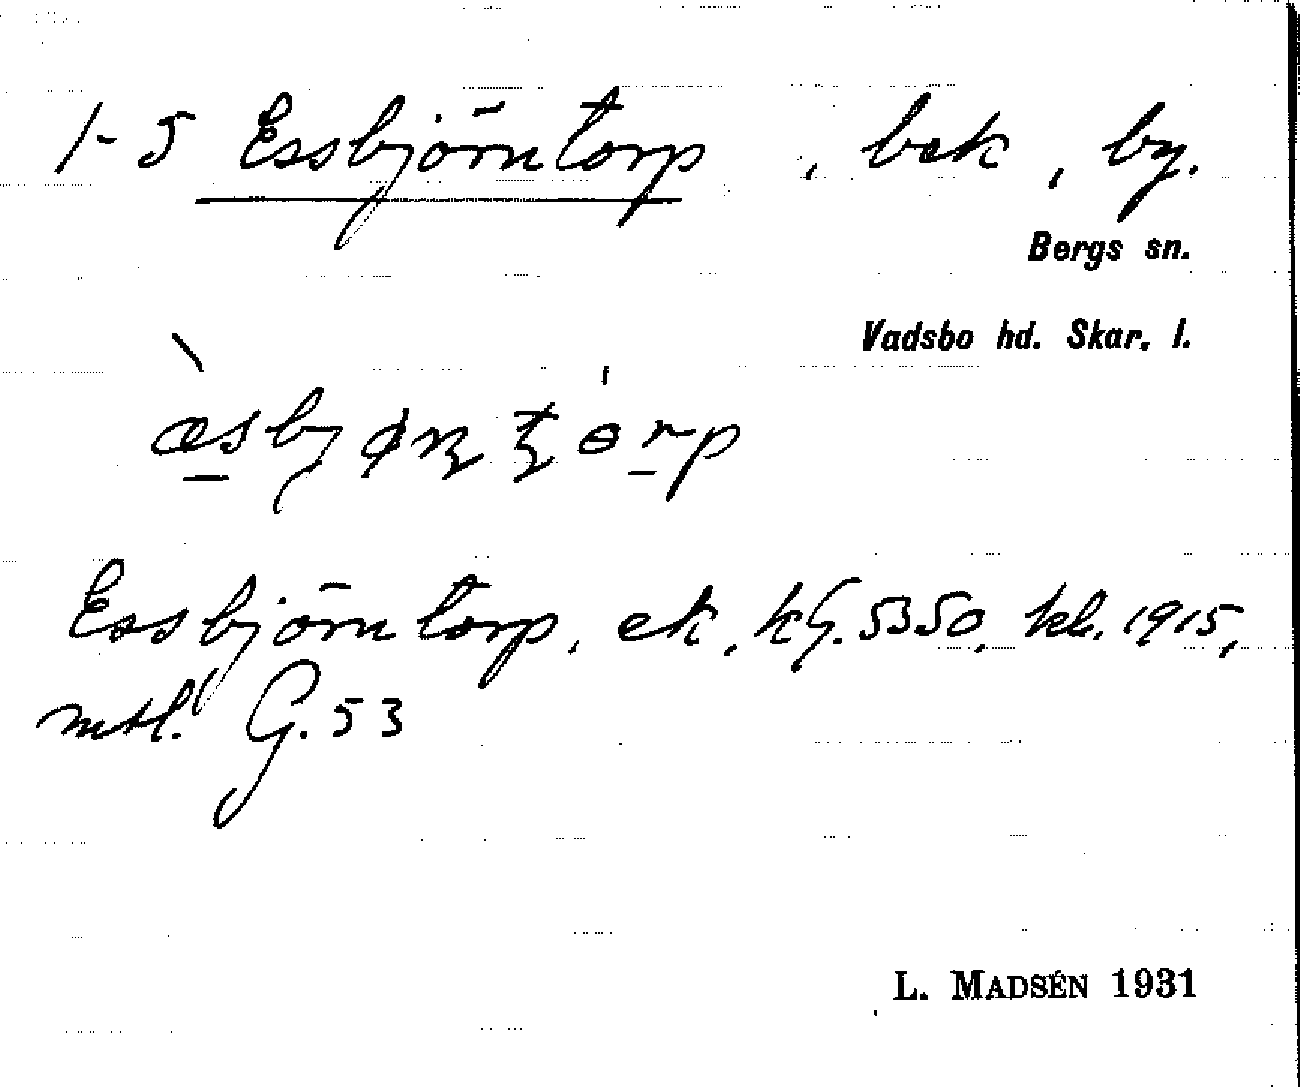 1-5 Essbjörntorp, bek, by.
Bergs sn.
Vadsbo hd. Skar. l.
Essbjörntorp, ek, kG. 5350, kl. 1915,
mtl. G. 53
L. MADSÉN 1931